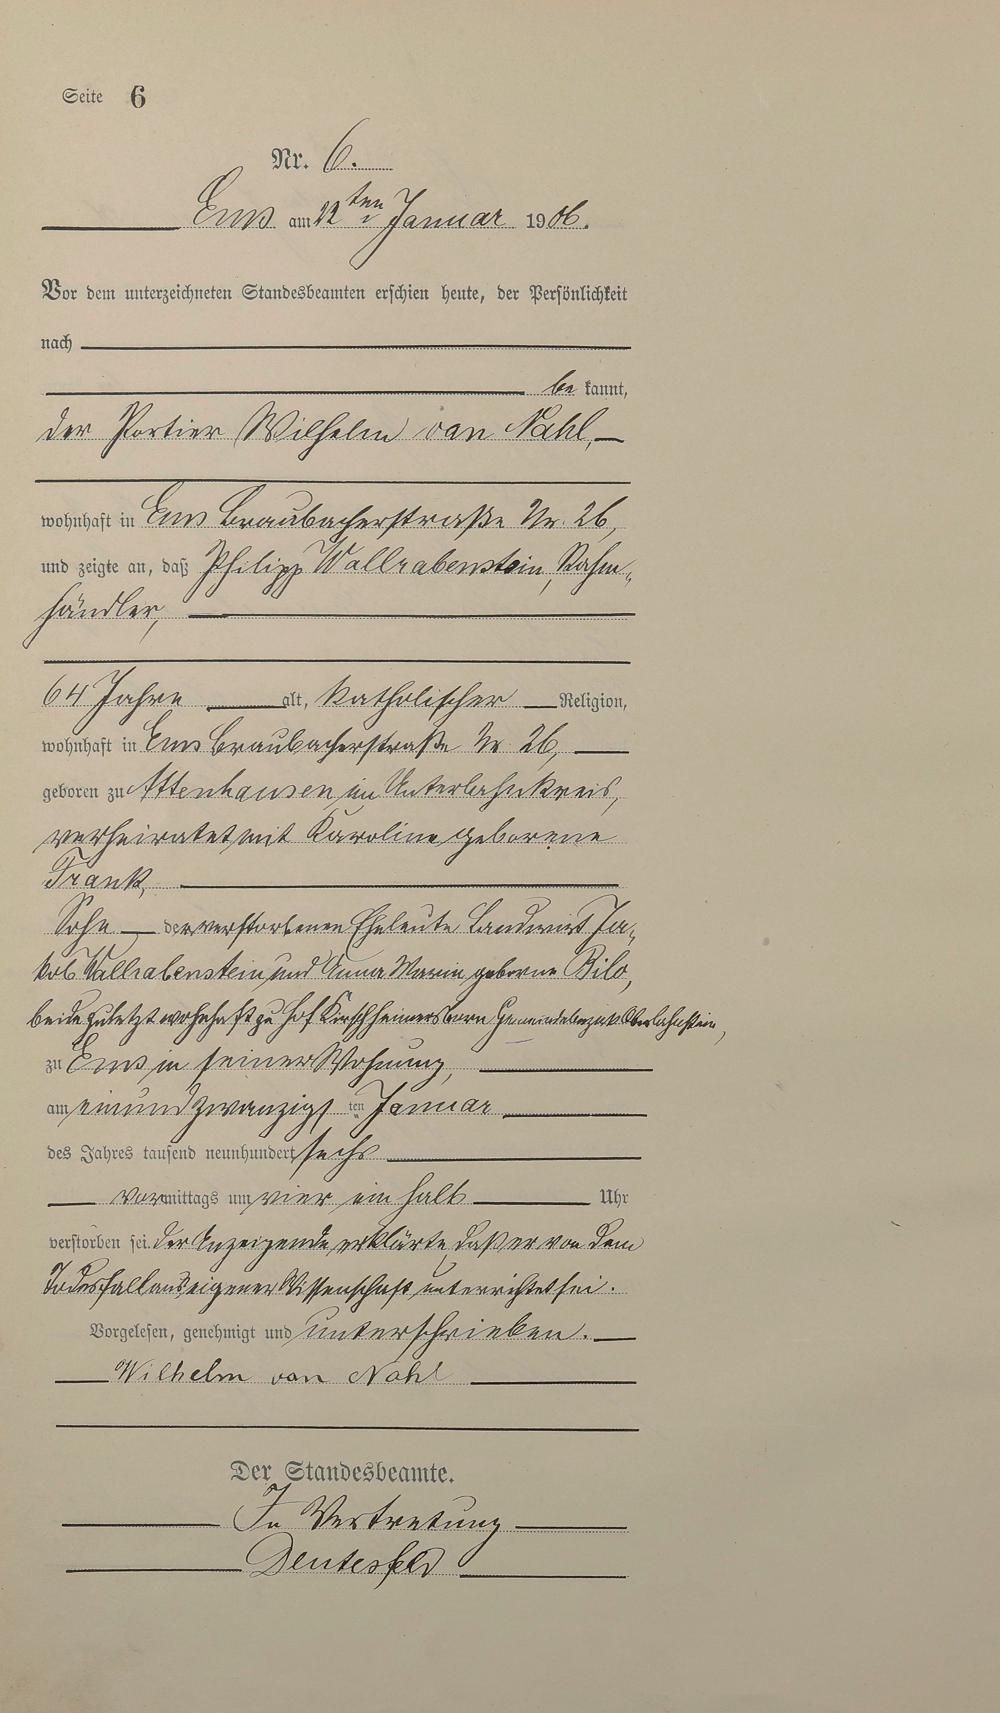 Seite 6
Nr. 6.
Ems am ten Januar 1906.
Vor dem unterzeichneten Standesbeamten erschien heute, der Persönlichkeit
nach
be kannt,
der Portier Wilhelm van Nahl,
wohnhaft in Ems Braubacherstraße Nr. 26,
und zeigte an, daß Philipp Wallrabenstein,
händler,
64 Jahre alt, katholischer Religion,
wohnhaft in Ems Braubacherstraße Nr 26,
geboren zu Attenhausen im Unterlahnkreis,
verheiratet mit Karoline geborene
Frank,
Sohn der verstorbenen Eheleute Landwirt Ja-
kob Wallrabenstein und Anna Maria geborne Bilo,
beide zuletzt wohnhaft zu Hof Kirschheimersborn Gemeindebezirk Oberlahnstein,
zu Ems in seiner Wohnung,
am einundzwanzigsten Januar
des Jahres tausend neunhundert sechs
vormittags um vier ein halb Uhr
verstorben sei. Der Anzeigende erklärte, daß er von dem
Todesfall aus eigener Wissenschaft unterrichtet sei.
Vorgelesen, genehmigt und unterschrieben.
Wilhelm van Nahl
Der Standesbeamte.
In Vertretung